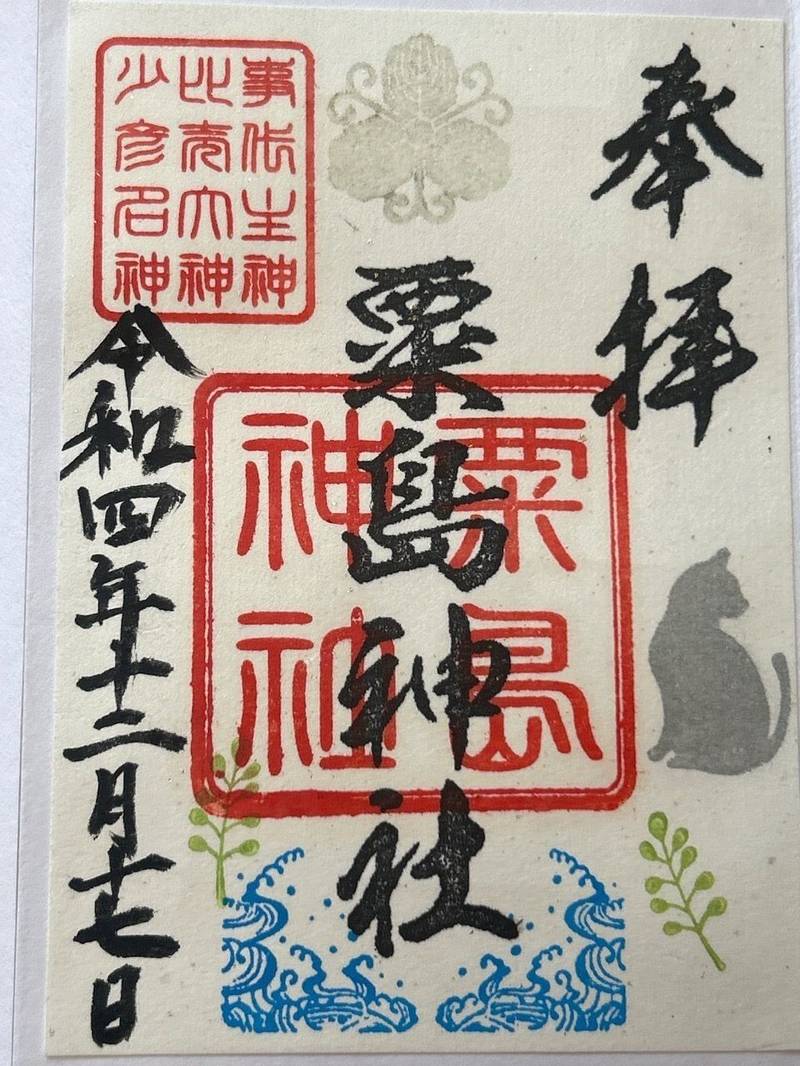 奉拝
粟島神社
粟島
神社
事代主神
比売大神
少彦名神
令和四年十二月十七日